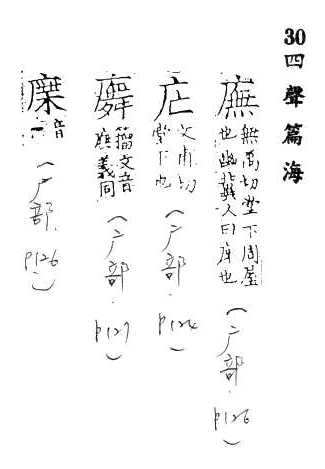 30四聲篇海
廡
無禹切堂下周屋
也幽北人曰庌也
（广部．
p126）
文甫切
堂下也
（广部．
p124）
籀文音
廡義同
（广部．
p127）
音
（广部．
p126）